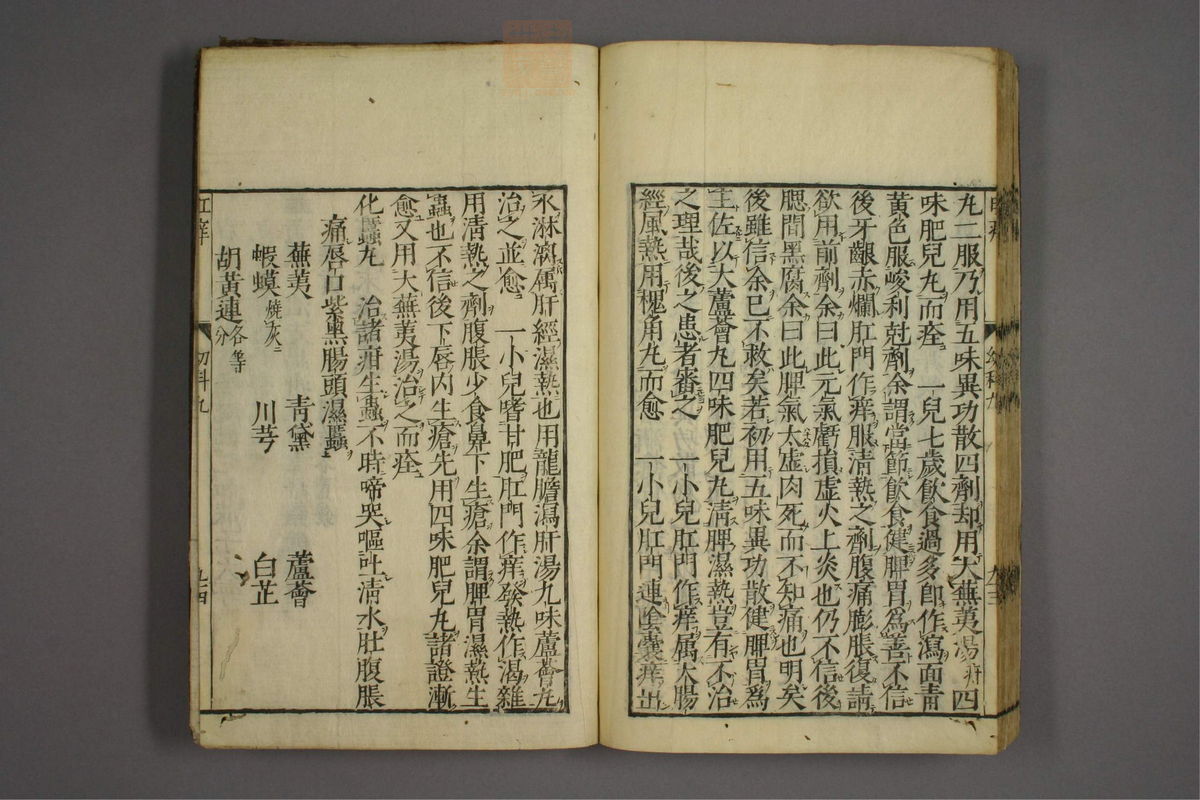 丸二服乃用五味異功散四劑却用大蕪荑湯疳四
味肥兒丸而痊 一兒七歲飲食過多卽作瀉面青
黃色服峻利尅劑余謂當節飲食健脾胃爲善不信
後牙齦赤爛肛門作痒服清熱之劑腹痛膨脹復請
欲用前劑余曰此元氣虧損虛火上炎也仍不信後
腮間黑腐余曰此脾氣太虛肉死而不知痛也明矣
後雖信余已不救矣若初用五味異功散健脾胃爲
主佐以大蘆薈丸四味肥兒丸清脾濕熱豈有不治
之理哉後之患者審之 一小兒肛門作痒属大腸
經風熱用槐角丸而愈 一小兒肛門連陰囊痒出
水淋漓属肝經濕熱也用龍膽瀉肝湯九味蘆薈丸
治之並愈 一小兒嗜甘肥肛門作痒發熱作渴雜
用清熱之劑腹脹少食鼻下生瘡余謂脾胃濕熱生
蟲也不信後下唇内生瘡先用四味肥兒丸諸證漸
愈又用大蕪荑湯治之而痊
化䘌丸 治諸疳生蟲不時啼哭嘔吐清水肚腹脹
痛唇口紫黑腸頭濕䘌
蕪荑 青黛 蘆薈
蝦蟆燒灰 川芎 白芷
胡黃連各等分
幼科九 九四